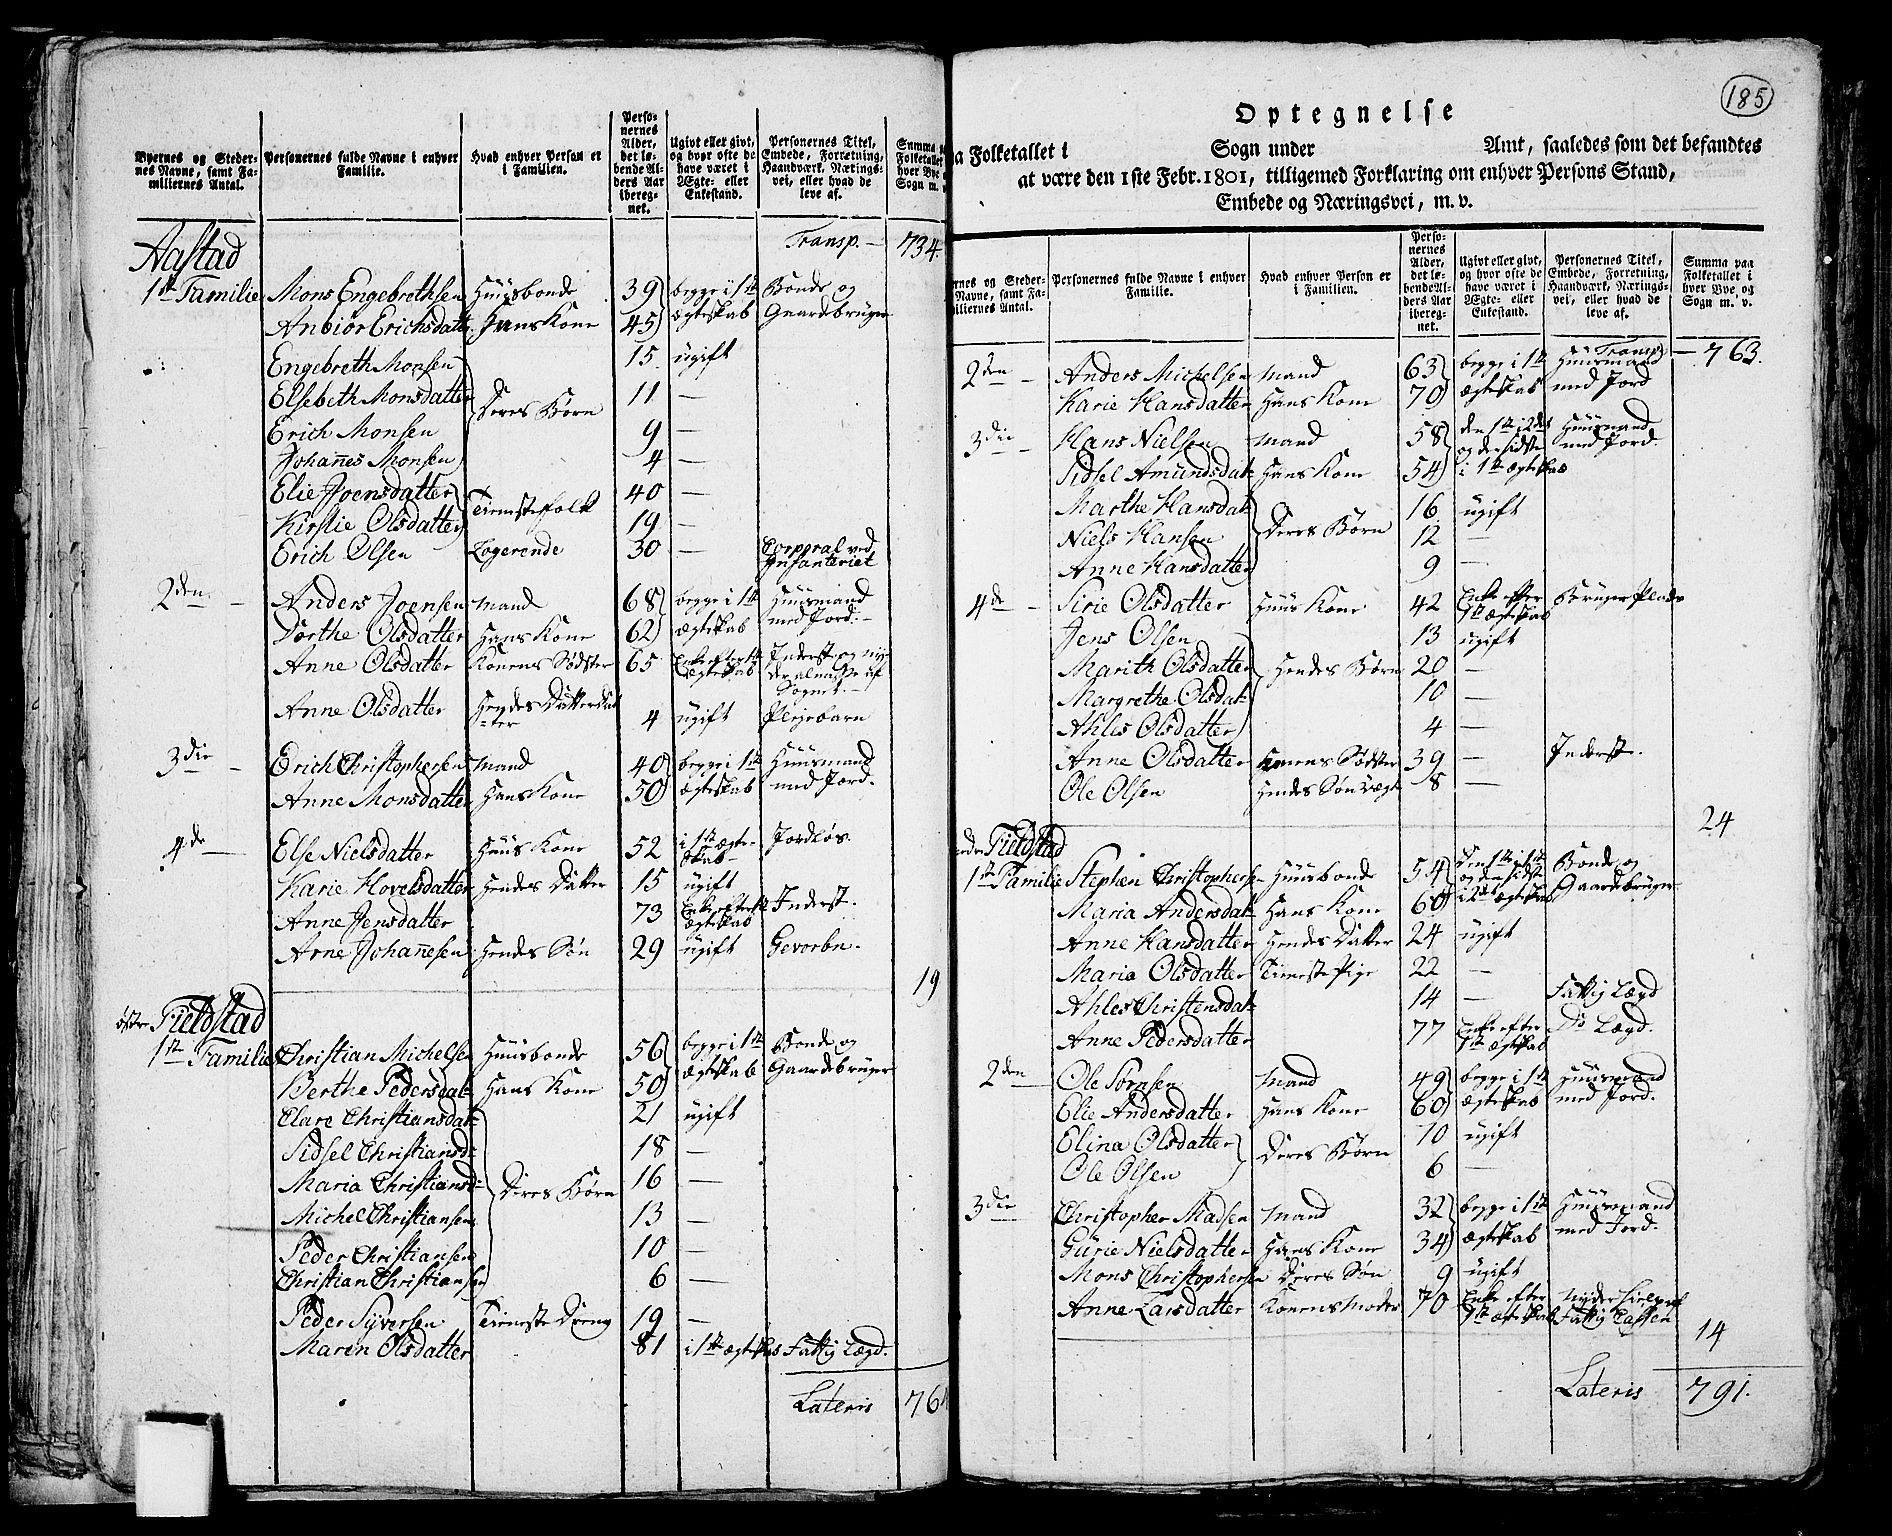 Byernes og Steder-nes Navne, samt Fa-miliernes Antal. | Personernes fulde Navne i enhver Familie. | Hvad enhver Person er i Familien. | Perso-nernes Alder, det lø-bende Al-ders Aar iberegnet. | Ugivt eller givt, og hvor ofte de have været i Ægte- eller Enkestand. | Personernes Titel, Embede, Forretning, Haandværk, Nærings-vei, eller hvad de leve af. | Summa Folketallet hver Bye Sogn m.
Transp. — 734.
Aastad
1ste Familie Mons Engebrethsen Huusbonde 39 begge i 1ste Bonde og
Anbior Erichsdatter Hans Kone 45 ægteskab Gaardbruger
Engebreth Monsen 15 ugift
Elsebeth Monsdatter Deres Børn 11 —
Erich Monsen 9 —
Johannes Monsen 4 —
Elie Joensdatter Tienestefolk 40 —
Kirstie Olsdatter 19 —
Erich Olsen Logerende 30 — Corporal ved Infanteriet
2den — Anders Joensen Mand 68 begge i 1ste Huusmand
Dorthe Olsdatter Hans Kone 62 ægteskab med Jord. —
Anne Olsdatter Konens Södster 65 Enke efter 1ste ægteskab Inderst og nyder almisse af Sognet. —
Anne Olsdatter Hendes Datterdatter 4 ugift Plejebarn
3die — Erich Christophersen Mand 40 begge i 1ste Huusmand
Anne Monsdatter Hans Kone 50 ægteskab med Jord.
4de — Else Nielsdatter Huus Kone 52 i 1ste ægteskab — Jordløs.
Karie Hovelsdatter Hendes Datter 15 ugift
Anne Jensdatter 73 Enke efter 1ste ægteskab Inderst.
Arne Johannesen Hendes Søn 29 ugift Gevorbn.
19
östre Fieldstad
1ste Familie Christian Michelsen Huusbonde 56 begge i 1ste Bonde og
Berthe Pedersdat: Hans Kone 50 ægteskab Gaardebruger
Clare Christiansdat: 21 ugift
Sidsel Christiansd: 18 —
Maria Christiansd: Deres Børn 16 —
Michel Christiansen 13 —
Peder Christiansen 10 —
Christian Christiansen 6 —
Peder Syversen Tieneste Dreng 19 —
Maren Olsdatter 81 i 1ste ægteskab Fattig Lægd.
Lateris 76
185
Optegnelse
Folketallet i Sogn under Amt, saaledes som det befandtes
at være den 1ste Febr. 1801, tilligemed Forklaring om enhver Persons Stand,
Embede og Næringsvei, m. v.
rnes og Steder- Navne, samt Fa-miliernes Antal. | Personernes fulde Navne i enhver Familie. | Hvad enhver Person er i Familien. | Perso-nernes Alder, det lø-bende Al-ders Aar iberegnet. | Ugivt eller givt, og hvor ofte de have været i Ægte- eller Enkestand. | Personernes Titel, Embede, Forretning, Haandværk, Nærings-vei, eller hvad de leve af. | Summa paa Folketallet i hver Bye og Sogn m. v.
Transp. — 763.
2den — Anders Michelsen Mand 63 begge i 1ste Huusmand
Karie Hansdatter Hans Kone 70 ægteskab med Jord
3die — Hans Nielsen Mand 58 den 1ste i 2det Huusmand
Sidsel Amundsdat: Hans Kone 54 og den sidste i 1ste ægteskab med Jord.
Marthe Hansdat: 16 ugift
Niels Hansen Deres Børn 12 —
Anne Hansdatter 9 —
4de — Sirie Olsdatter Huus Kone 42 Enke efter 1ste ægteskab Bruger Pladsen
Jens Olsen 13 ugift
Marith Olsdatter Hendes Børn 20 —
Margrethe Olsdat: 10 —
Ahles Olsdatter 4 —
Anne Olsdatter Konens Södster 39 — Inderst.
Ole Olsen Hendes Søn uægte 8 —
24
Fieldstad
1ste Familie Stephen Christophersen Huusbonde 54 Den 1ste i 1ste Bonde og
Maria Andersdat: Hans Kone 60 og den sidste i 2det ægteskab Gaardebruger
Anne Hansdatter Hendes Datter 24 ugift
Maria Olsdatter Tieneste Pige 22 —
Ahles Christensdat: 14 — Fattig Lægd
Anne Pedersdatter 77 Enke efter 1ste ægteskab Do Lægd.
2den — Ole Sørnsen Mand 49 begge i 1ste Huusmand
Elie Andersdatter Hans Kone 60 ægteskab med Jord.
Elina Olsdatter Deres Børn 10 ugift
Ole Olsen 6 —
3die — Christopher Madsen Mand 32 begge i 1ste Huusmand
Gurie Nielsdatter Hans Kone 34 ægteskab med Jord.
Mons Christophersen Deres Søn 9 ugift
Anne Larsdatter Konens Moder 70 Enke efter 1ste ægteskab Nyder Hielp af Fattig Cassen
14
Lateris 791.